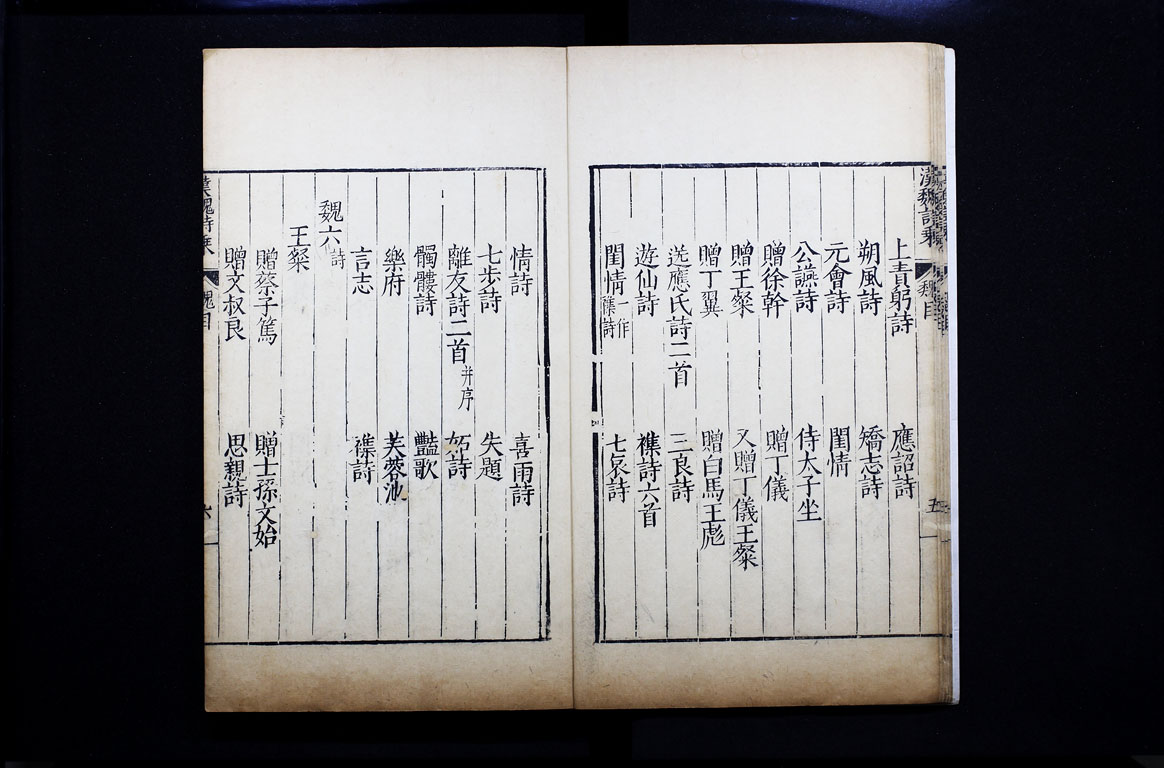 漢魏詩乗 魏目 五
上責躬詩 應詔詩
朔風詩 矯志詩
元會詩 閨情
公讌詩 侍太子坐
贈徐幹 贈丁儀
贈王粲 又贈丁儀王粲
贈丁翼 贈白馬王彪
送應氏詩二首 三良詩
遊仙詩 襍詩六首
閨情一作襍詩 七哀詩
情詩 喜雨詩
七步詩 失題
離友詩二首并序 妬詩
髑髏詩 豔歌
樂府 芙蓉池
言志 襍詩
魏六詩
王粲
贈蔡子篤 贈士孫文始
贈文叔良 思親詩
漢魏詩乗 魏目 六